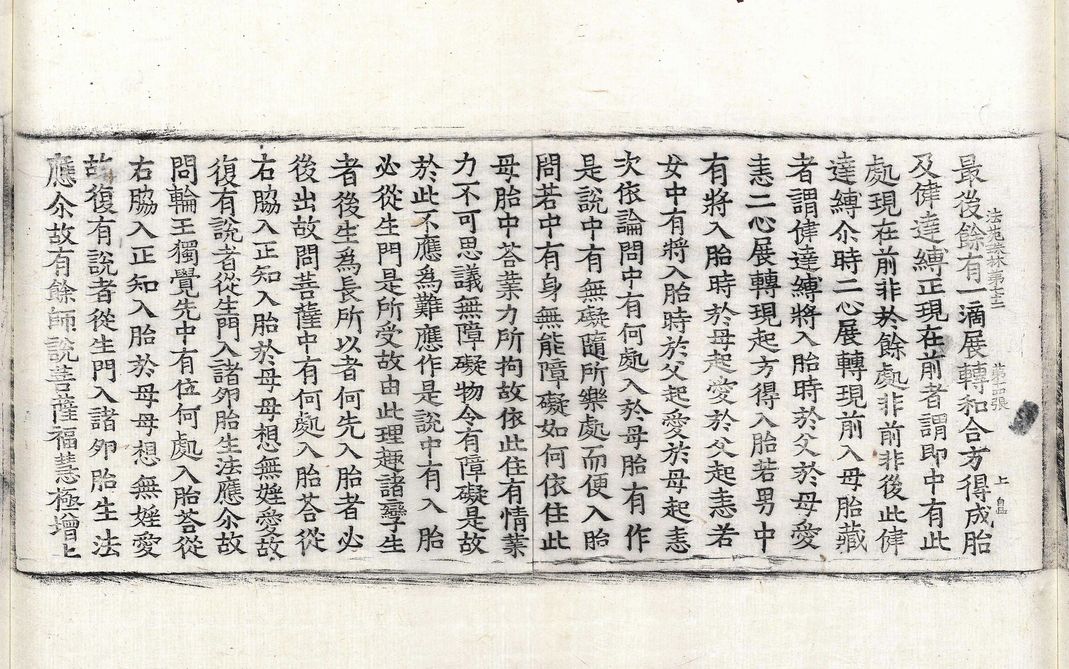 最後餘有一滴展轉和合方得成胎
及健達縛正現在前者謂即中有此
處現在前非於餘處非前非後此健
達縛尒時二心展轉現前入母胎藏
者謂健達縛將入胎時於父於母愛
恚二心展轉現起方得入胎若男中
有將入胎時於母起愛於父起恚若
女中有將入胎時於父起愛於母起恚
次依論問中有何處入於母胎有作
是說中有無礙隨所樂處而便入胎
問若中有身無能障礙如何依住此
母胎中荅業力所拘故依此住有情業
力不可思議無障礙物令有障礙是故
於此不應為難應作是說中有入胎
必從生門是所受故由此理趣諸孿生
者後生為長所以者何先入胎者必
後出故問菩薩中有何處入胎荅從
右脇入正知入胎於母母想無婬愛故
復有說者從生門入諸夘胎生法應尒故
問輪王獨覺先中有位何處入胎荅從
右脇入正知入胎於母母想無婬愛
故復有說者從生門入諸夘胎生法
應尒故有餘師說菩薩福慧極增上